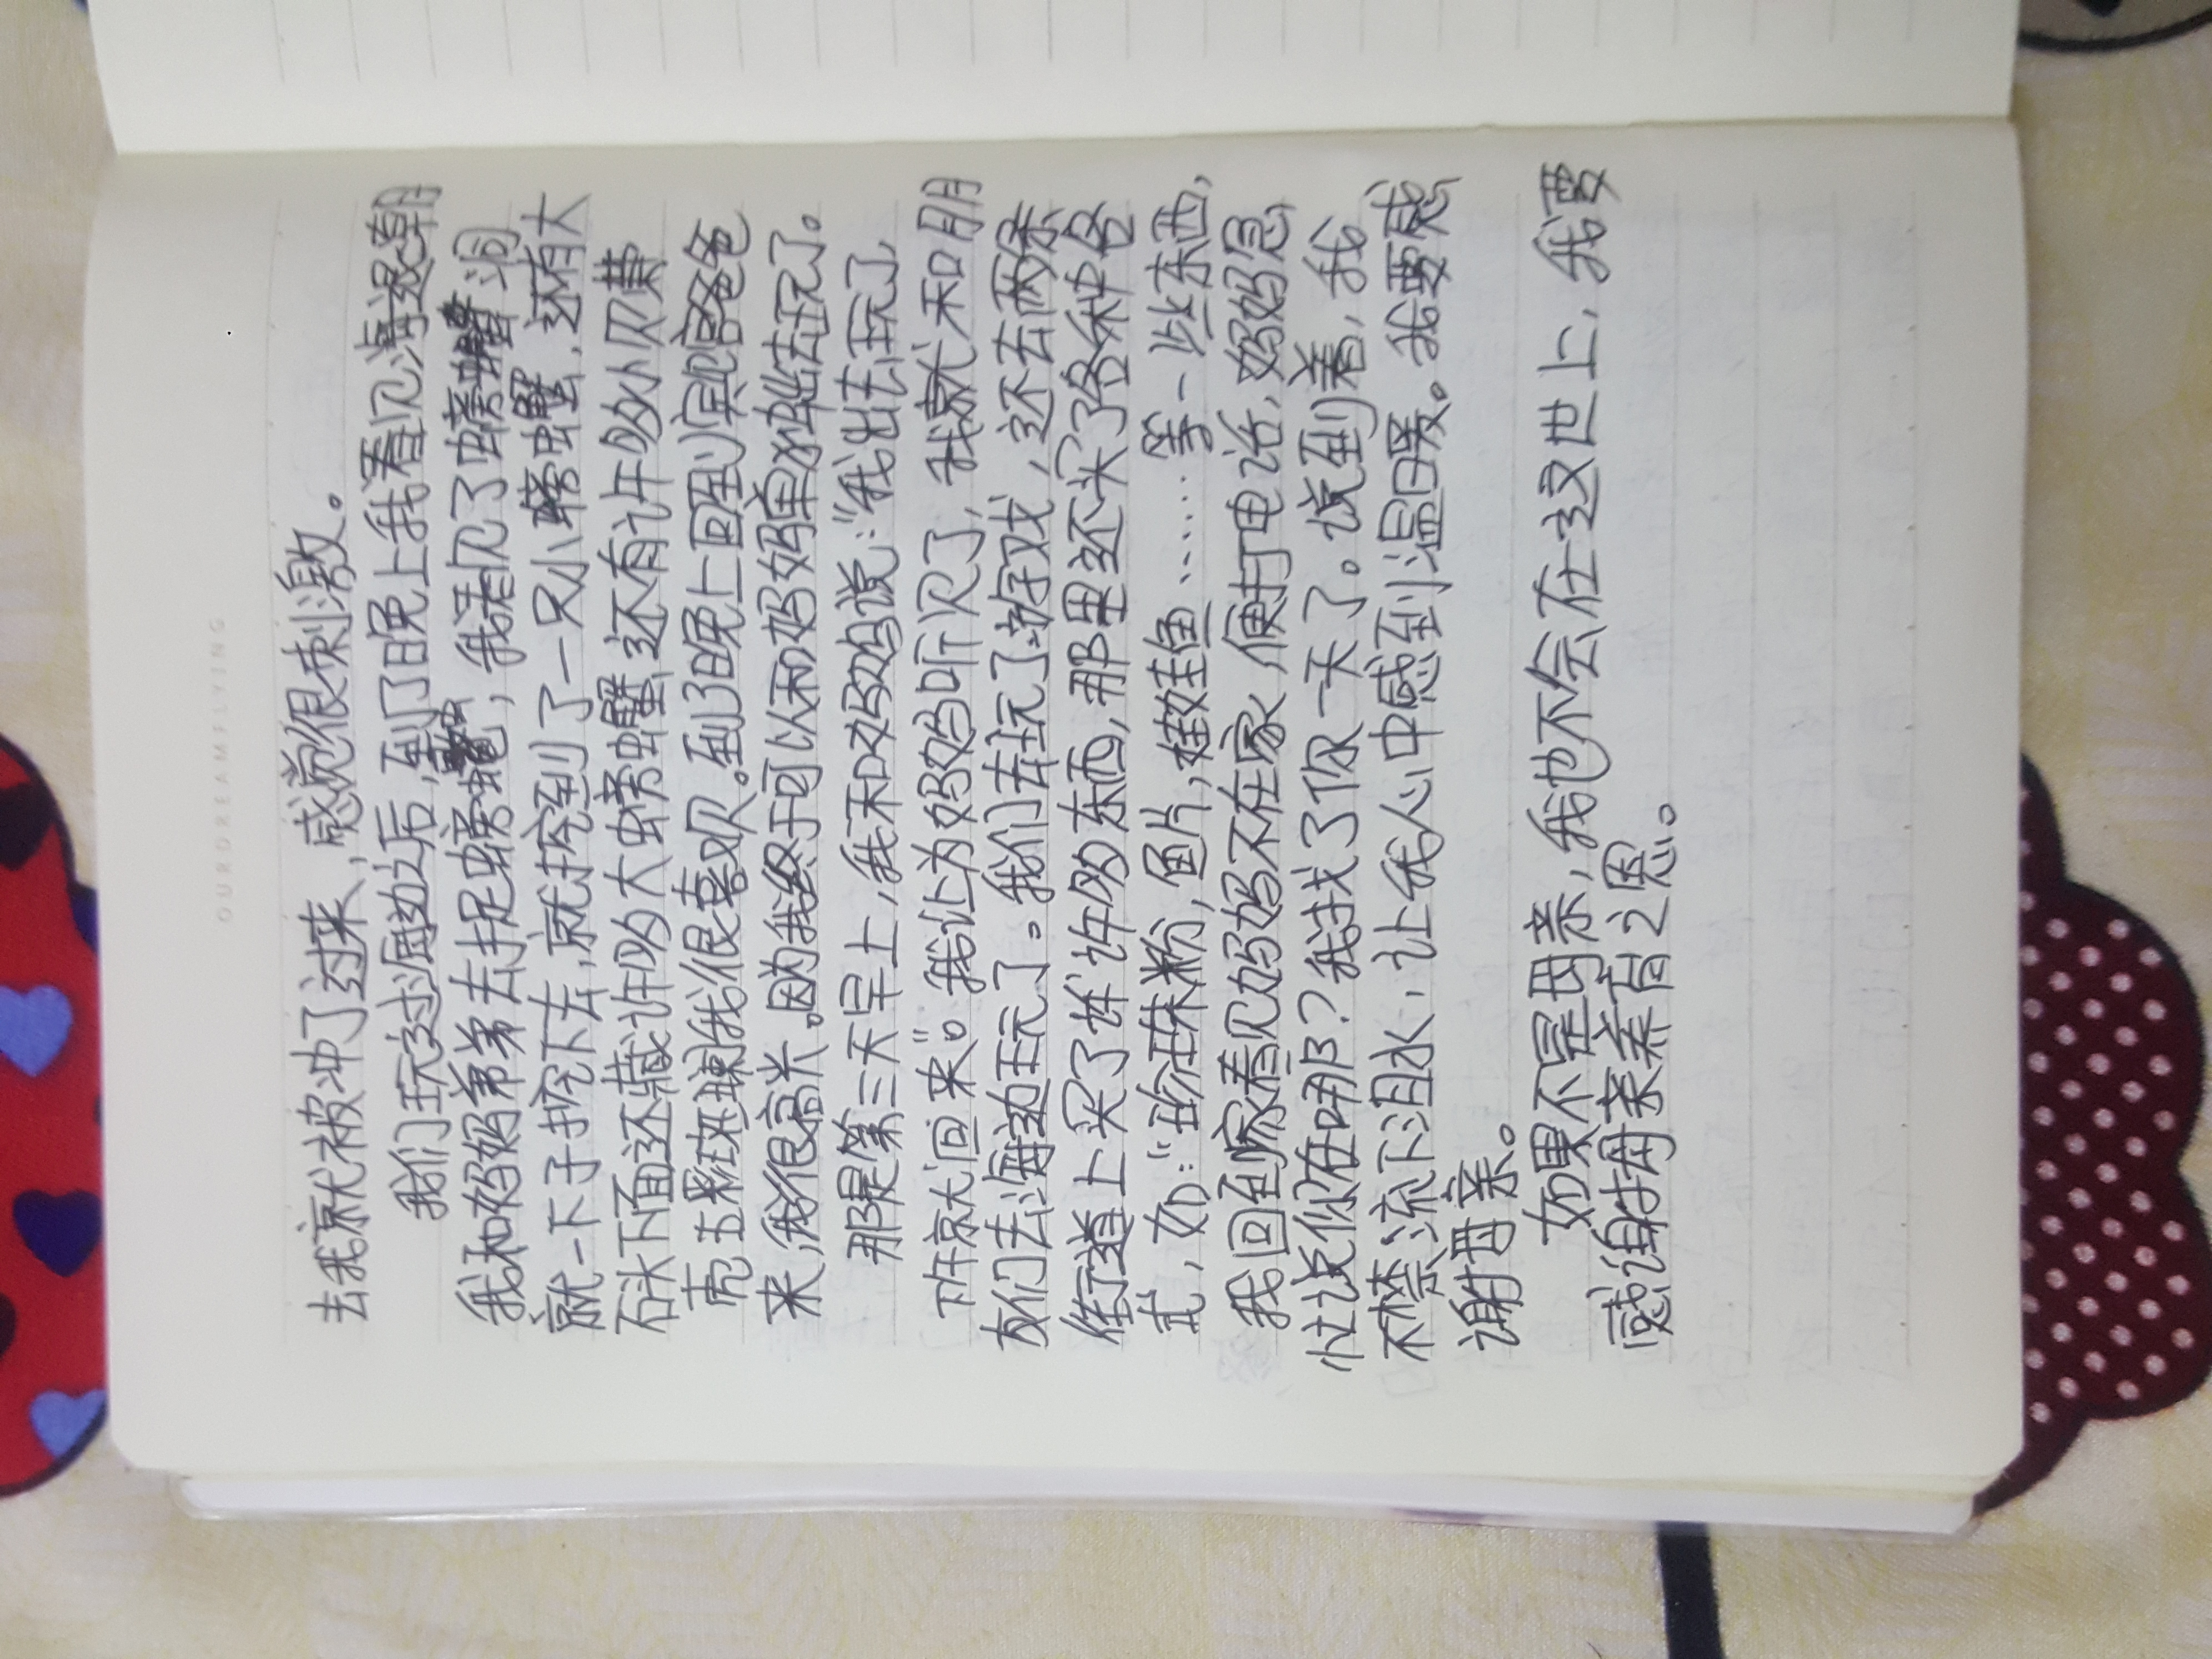 OURDREAMFLYING
去我就被冲了过来，感觉很刺激。
我们玩过海边之后，到了晚上我看见海退潮
我和妈妈弟弟去捉螃蟹，我看见了螃蟹洞
就一下子挖下去，就挖到了一只小螃蟹，还有大
石头下面还藏许多大螃蟹还有许多小贝
壳五彩斑斓我很喜欢。到了晚上回到宾馆爸爸
来，我很高兴。因为我终于可以和妈妈单独出去玩了。
那是第三天早上，我和妈妈说：“我出去玩了，
下午就回来”。我以为妈妈听见了，我就和朋
友们去海边玩了。我们去玩了游戏，还去两条
街道上买了许许多多东西，那里还买了各种各
式，如：“珍珠粉，鱼片，娃娃鱼……等一些东西，
我回到家看见妈妈不在家，便打电话，妈妈急
忙说你在哪？我找了你一天了。说到着，我
不禁流下泪水，让我心中感到温暖。我要感
谢母亲。
如果不是母亲，我也不会在这世上，我要
感谢母亲养育之恩。